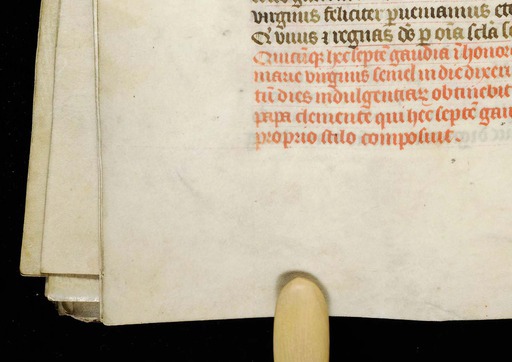 virginis feliciter ꝑueniamus ete
Q̇ viuis ⁊ regnas dꝰ ꝑ oīa scl̄a
Quicūqꝫ hec septē gaudia ī honor
marie virginis semel in die dixeri
tū dies indulgentiaꝝ obtinebit
papa clemente qui hec septē gau
proprio stilo composuit.